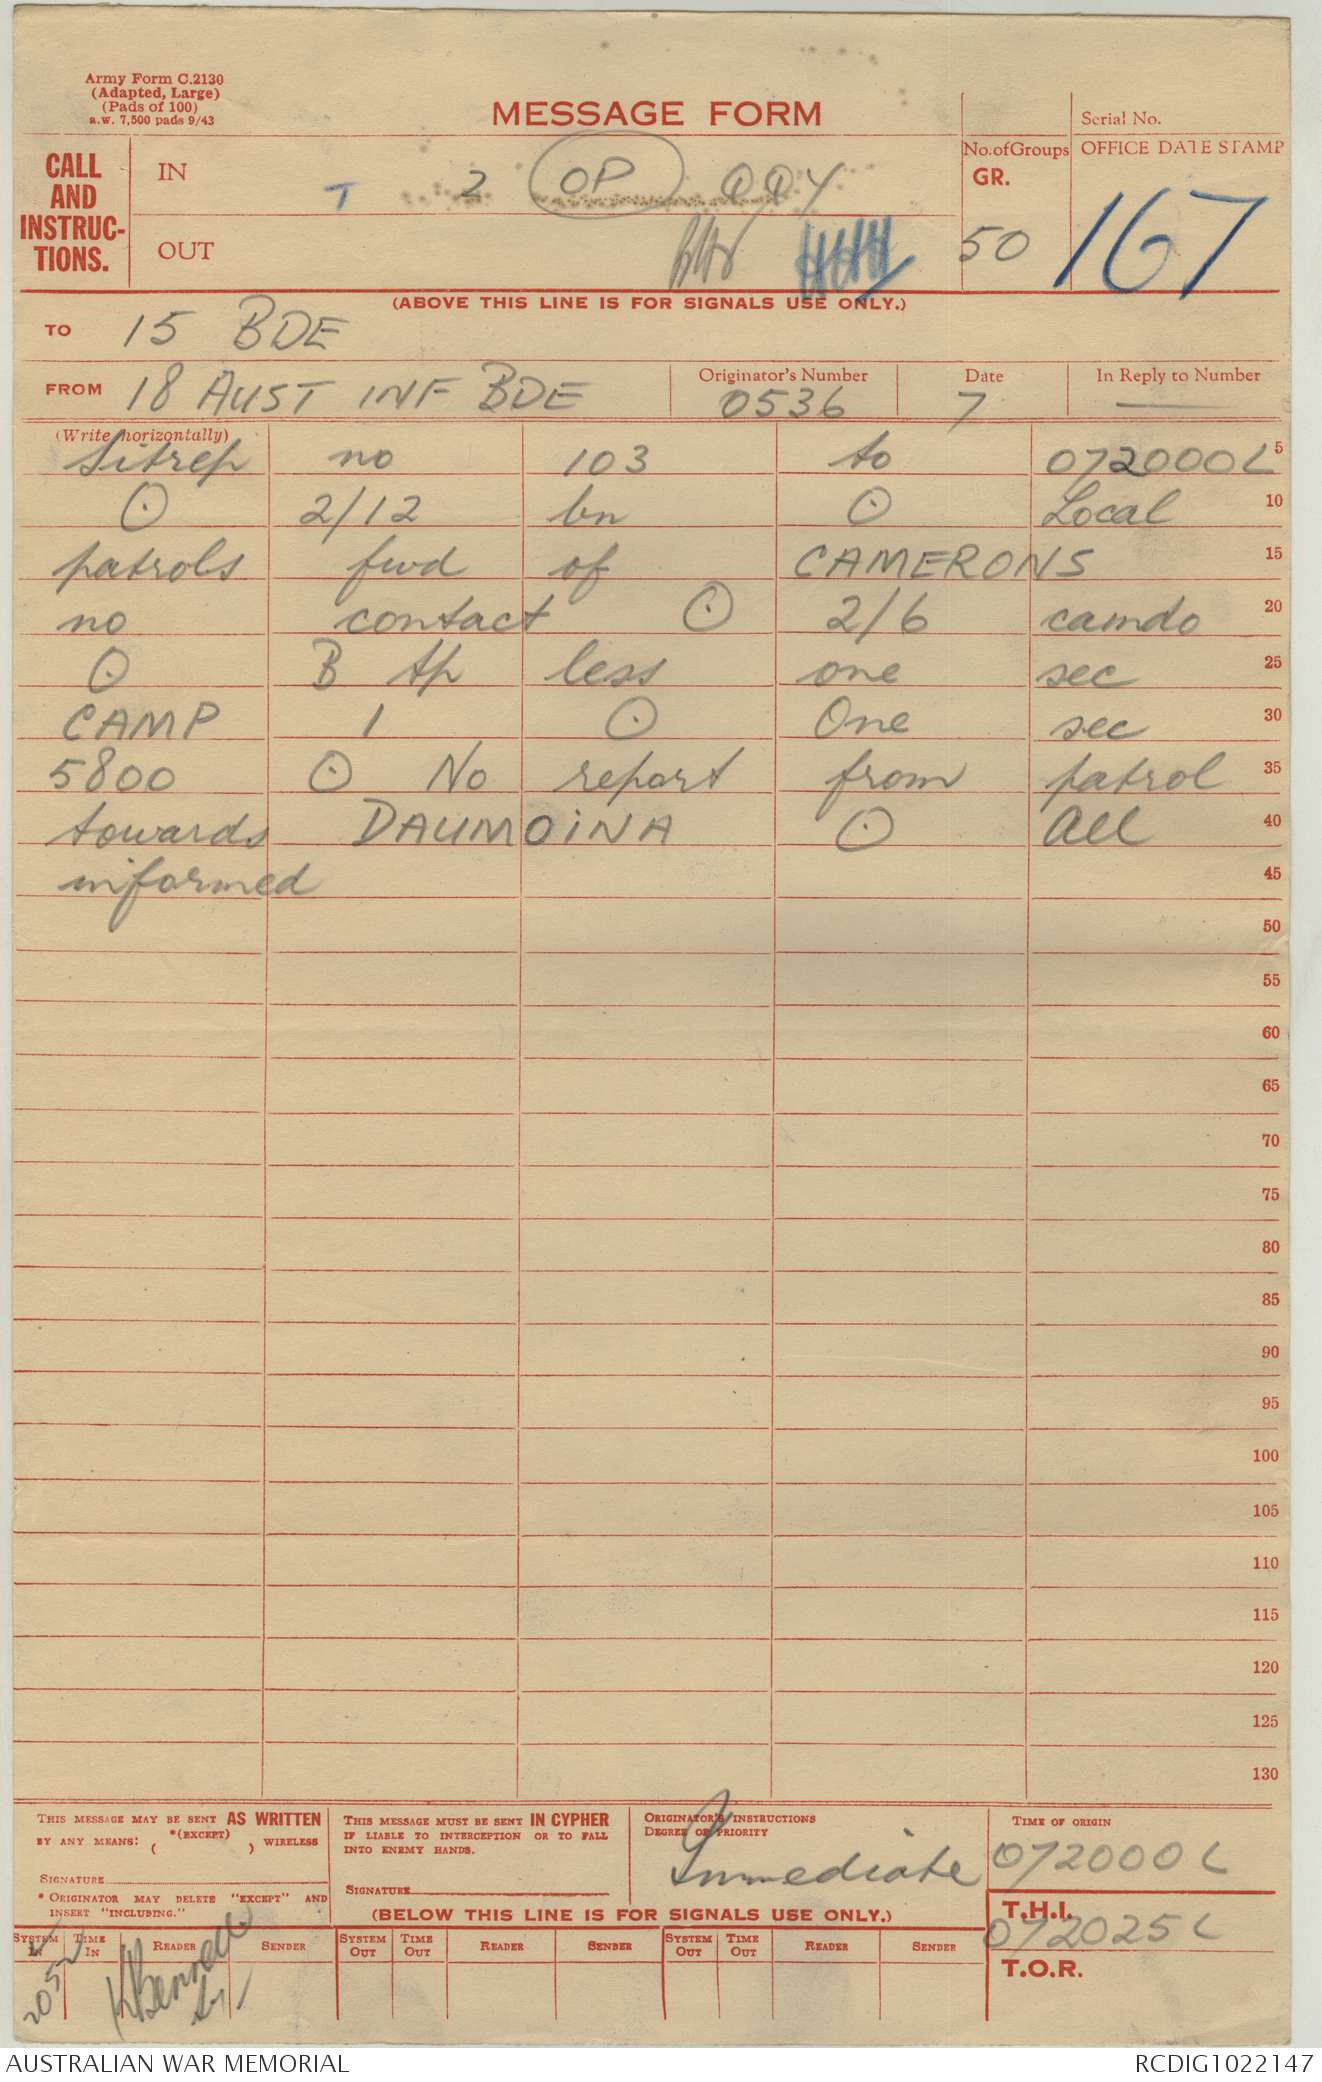 Army Form C.2130
(Adapted, Large)
(Pads of 100)
a.w. 7,500 pads 9/43
MESSAGE FORM
Serial No.
CALL AND INSTRUCTIONS.
IN T 2 OP QQY
No. of Groups GR. 50
OFFICE DATE STAMP
167
OUT
(ABOVE THIS LINE IS FOR SIGNALS USE ONLY.)
TO 15 BDE
FROM 18 AUST INF BDE
Originator's Number 0536
Date 7
In Reply to Number —
(Write horizontally)
Sitrep no 103 to 072000L 5
⊙ 2/12 bn ⊙ Local 10
patrols fwd of CAMERONS 15
no contact ⊙ 2/6 camdo 20
⊙ B tp less one sec 25
CAMP 1 ⊙ One sec 30
5800 ⊙ No report from patrol 35
towards DAUMOINA ⊙ All 40
informed 45
50
55
60
65
70
75
80
85
90
95
100
105
110
115
120
125
130
THIS MESSAGE MAY BE SENT AS WRITTEN
BY ANY MEANS: ( *(EXCEPT) ) WIRELESS
SIGNATURE
* ORIGINATOR MAY DELETE "EXCEPT" AND
INSERT "INCLUDING."
THIS MESSAGE MUST BE SENT IN CYPHER
IF LIABLE TO INTERCEPTION OR TO FALL
INTO ENEMY HANDS.
SIGNATURE
ORIGINATOR'S INSTRUCTIONS
DEGREE OF PRIORITY
Immediate
TIME OF ORIGIN
072000L
(BELOW THIS LINE IS FOR SIGNALS USE ONLY.)
T.H.I.
072025L
T.O.R.
SYSTEM IN TIME IN READER SENDER SYSTEM OUT TIME OUT READER SENDER SYSTEM OUT TIME OUT READER SENDER
AUSTRALIAN WAR MEMORIAL
RCDIG1022147